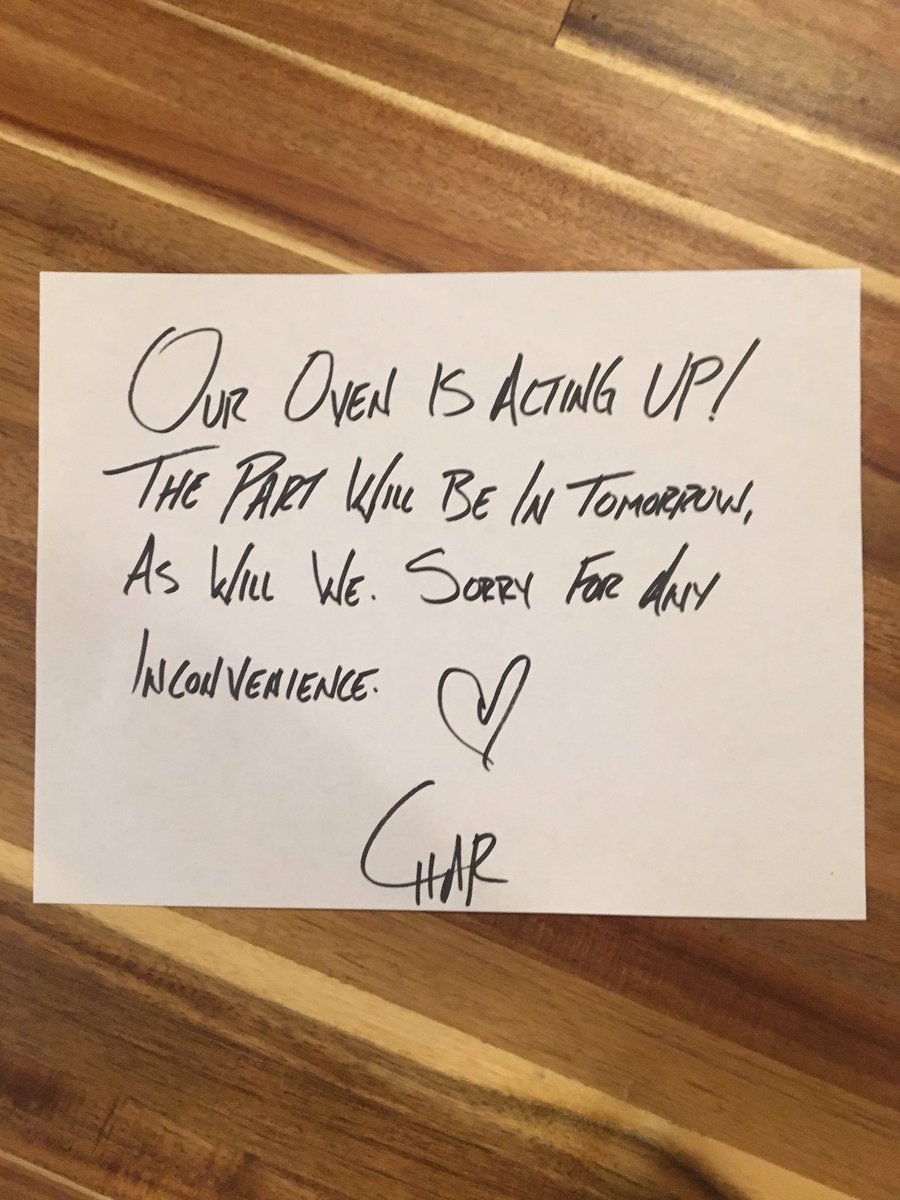 Our Oven is Acting Up!
The Part Will Be In Tomorrow,
As Will We. Sorry For Any
Inconvenience. ♡
Char